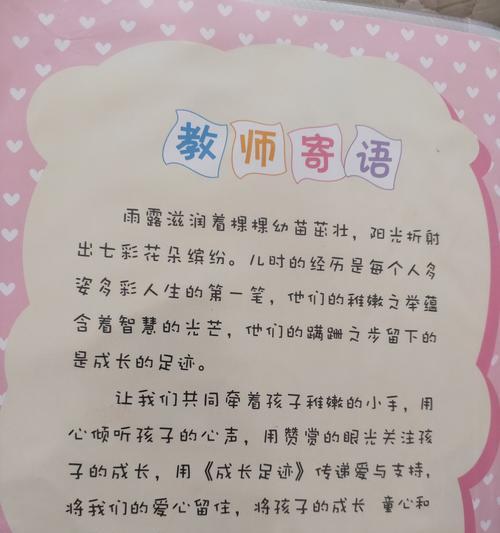 教师寄语
雨露滋润着棵棵幼苗茁壮，阳光折射
出七彩花朵缤纷。儿时的经历是每个人多
姿多彩人生的第一笔，他们的稚嫩之举蕴
含着智慧的光芒，他们的蹒跚之步留下的
是成长的足迹。
让我们共同牵着孩子稚嫩的小手，用
心倾听孩子的心声，用赞赏的眼光关注孩
子的成长，用《成长足迹》传递爱与支持，
将我们的爱心留住，将孩子的成长 童心和